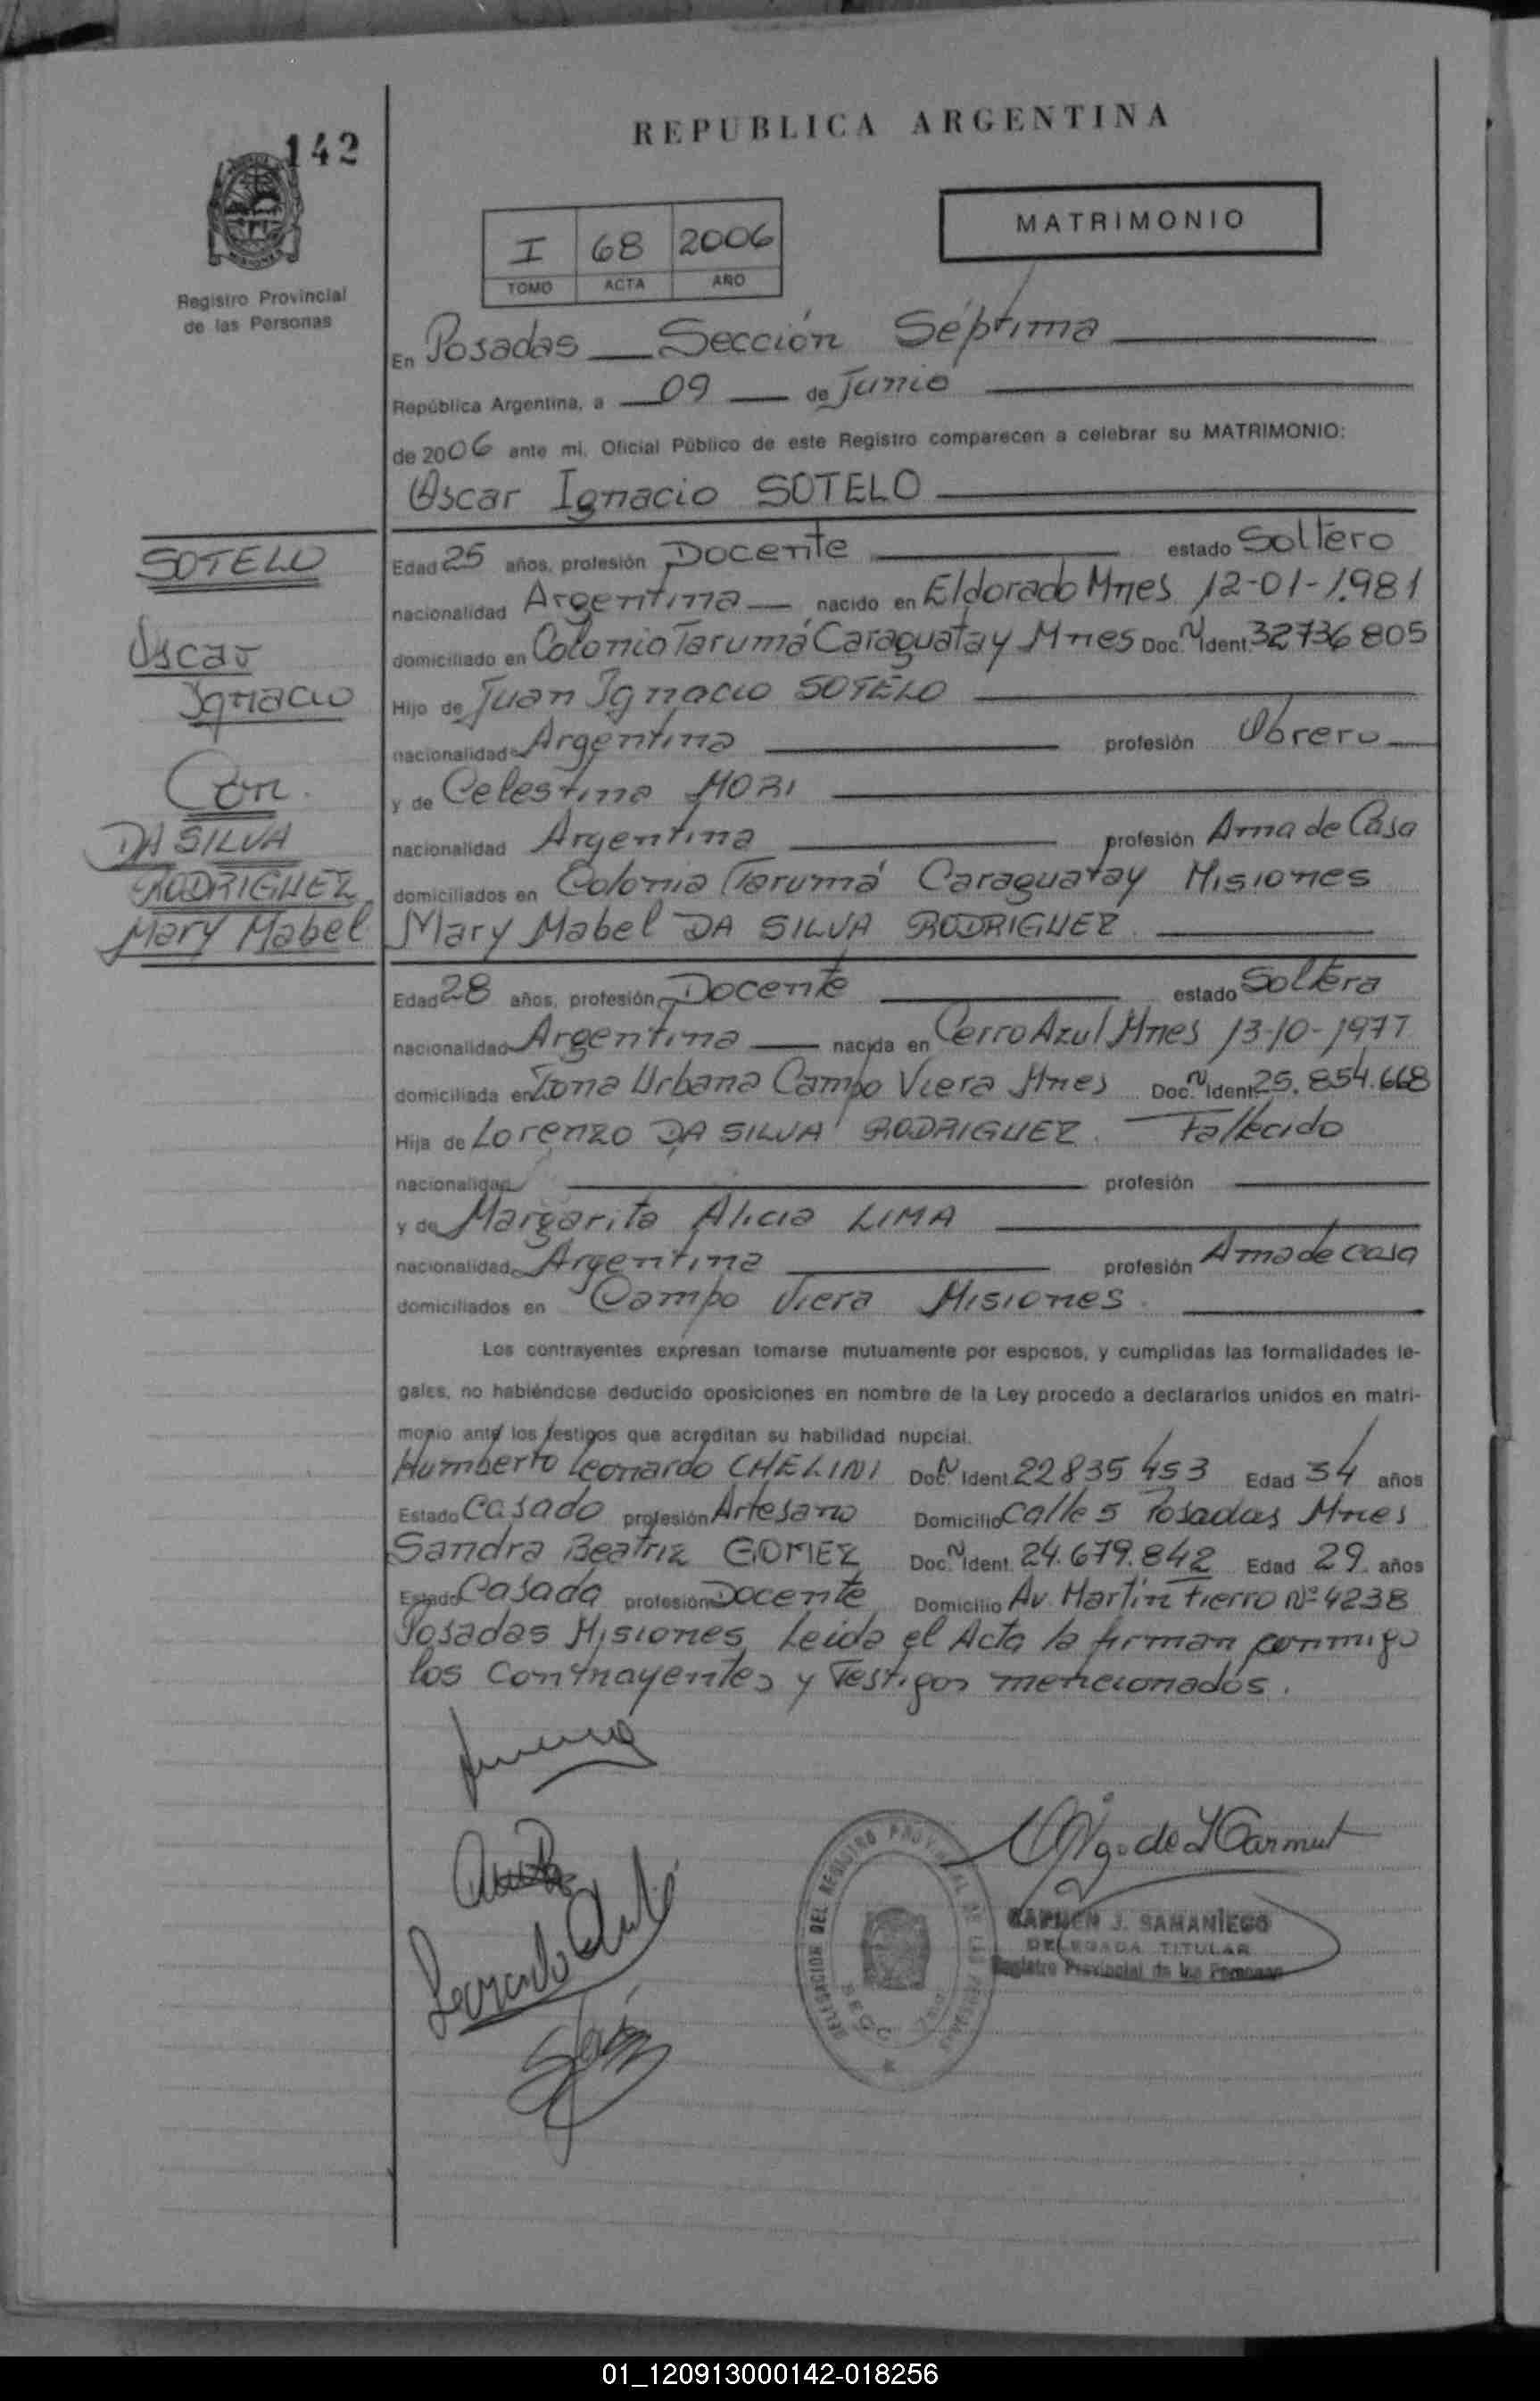 142
REPUBLICA ARGENTINA
MATRIMONIO
I 68 2006
TOMO ACTA AÑO
Registro Provincial
de las Personas
En Posadas Sección Séptima
República Argentina, a 09 de Junio
de 2006 ante mi, Oficial Público de este Registro comparecen a celebrar su MATRIMONIO:
Oscar Ignacio SOTELO
SOTELO
Oscar
Ignacio
Con
DA SILVA
RODRIGUEZ
Mary Mabel
Edad 25 años, profesión Docente estado Soltero
nacionalidad Argentina nacido en Eldorado Mnes 12-01-1.981
domiciliado en Colonia Tarumá Caraguatay Mnes Doc. N Ident. 32736805
Hijo de Juan Ignacio SOTELO
nacionalidad Argentina profesión Obrero
y de Celestina MORI
nacionalidad Argentina profesión Ama de Casa
domiciliados en Colonia Tarumá Caraguatay Misiones
Mary Mabel DA SILVA RODRIGUEZ
Edad 28 años, profesión Docente estado Soltera
nacionalidad Argentina nacida en Cerro Azul Mnes 13-10-1977
domiciliada en Zona Urbana Campo Viera Mnes Doc. N Ident. 25.854.668
Hija de Lorenzo DA SILVA RODRIGUEZ. Fallecido
nacionalidad profesión
y de Margarita Alicia LIMA
nacionalidad Argentina profesión Ama de casa
domiciliados en Campo Viera Misiones.
Los contrayentes expresan tomarse mutuamente por esposos, y cumplidas las formalidades le-
gales, no habiéndose deducido oposiciones en nombre de la Ley procedo a declararlos unidos en matri-
monio ante los testigos que acreditan su habilidad nupcial.
Humberto Leonardo CHELINI Doc. N Ident. 22835453 Edad 34 años
Estado Casado profesión Artesano Domicilio Calle 5 Posadas Mnes
Sandra Beatriz GOMEZ Doc. N Ident. 24.679.842 Edad 29 años
Estado Casada profesión Docente Domicilio Av. Martín Fierro Nº 4238
Posadas Misiones Leida el Acta la firman conmigo
los Contrayentes y Testigos mencionados.
DELEGACION DEL REGISTRO PROVINCIAL DE LAS PERSONAS
SECC.
CARMEN J. SAMANIEGO
DELEGADA TITULAR
Registro Provincial de las Personas
01_120913000142-018256